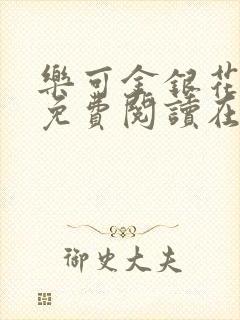 樂可金銀花
免費閱讀在
御史大夫